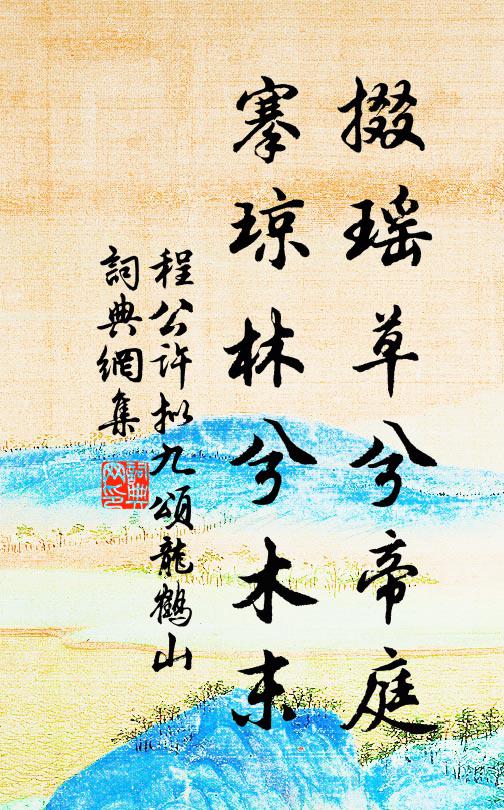 掇瑶草兮帝庭
搴琼林兮木末
程公许拟九頌龍鶴山
詞典網集